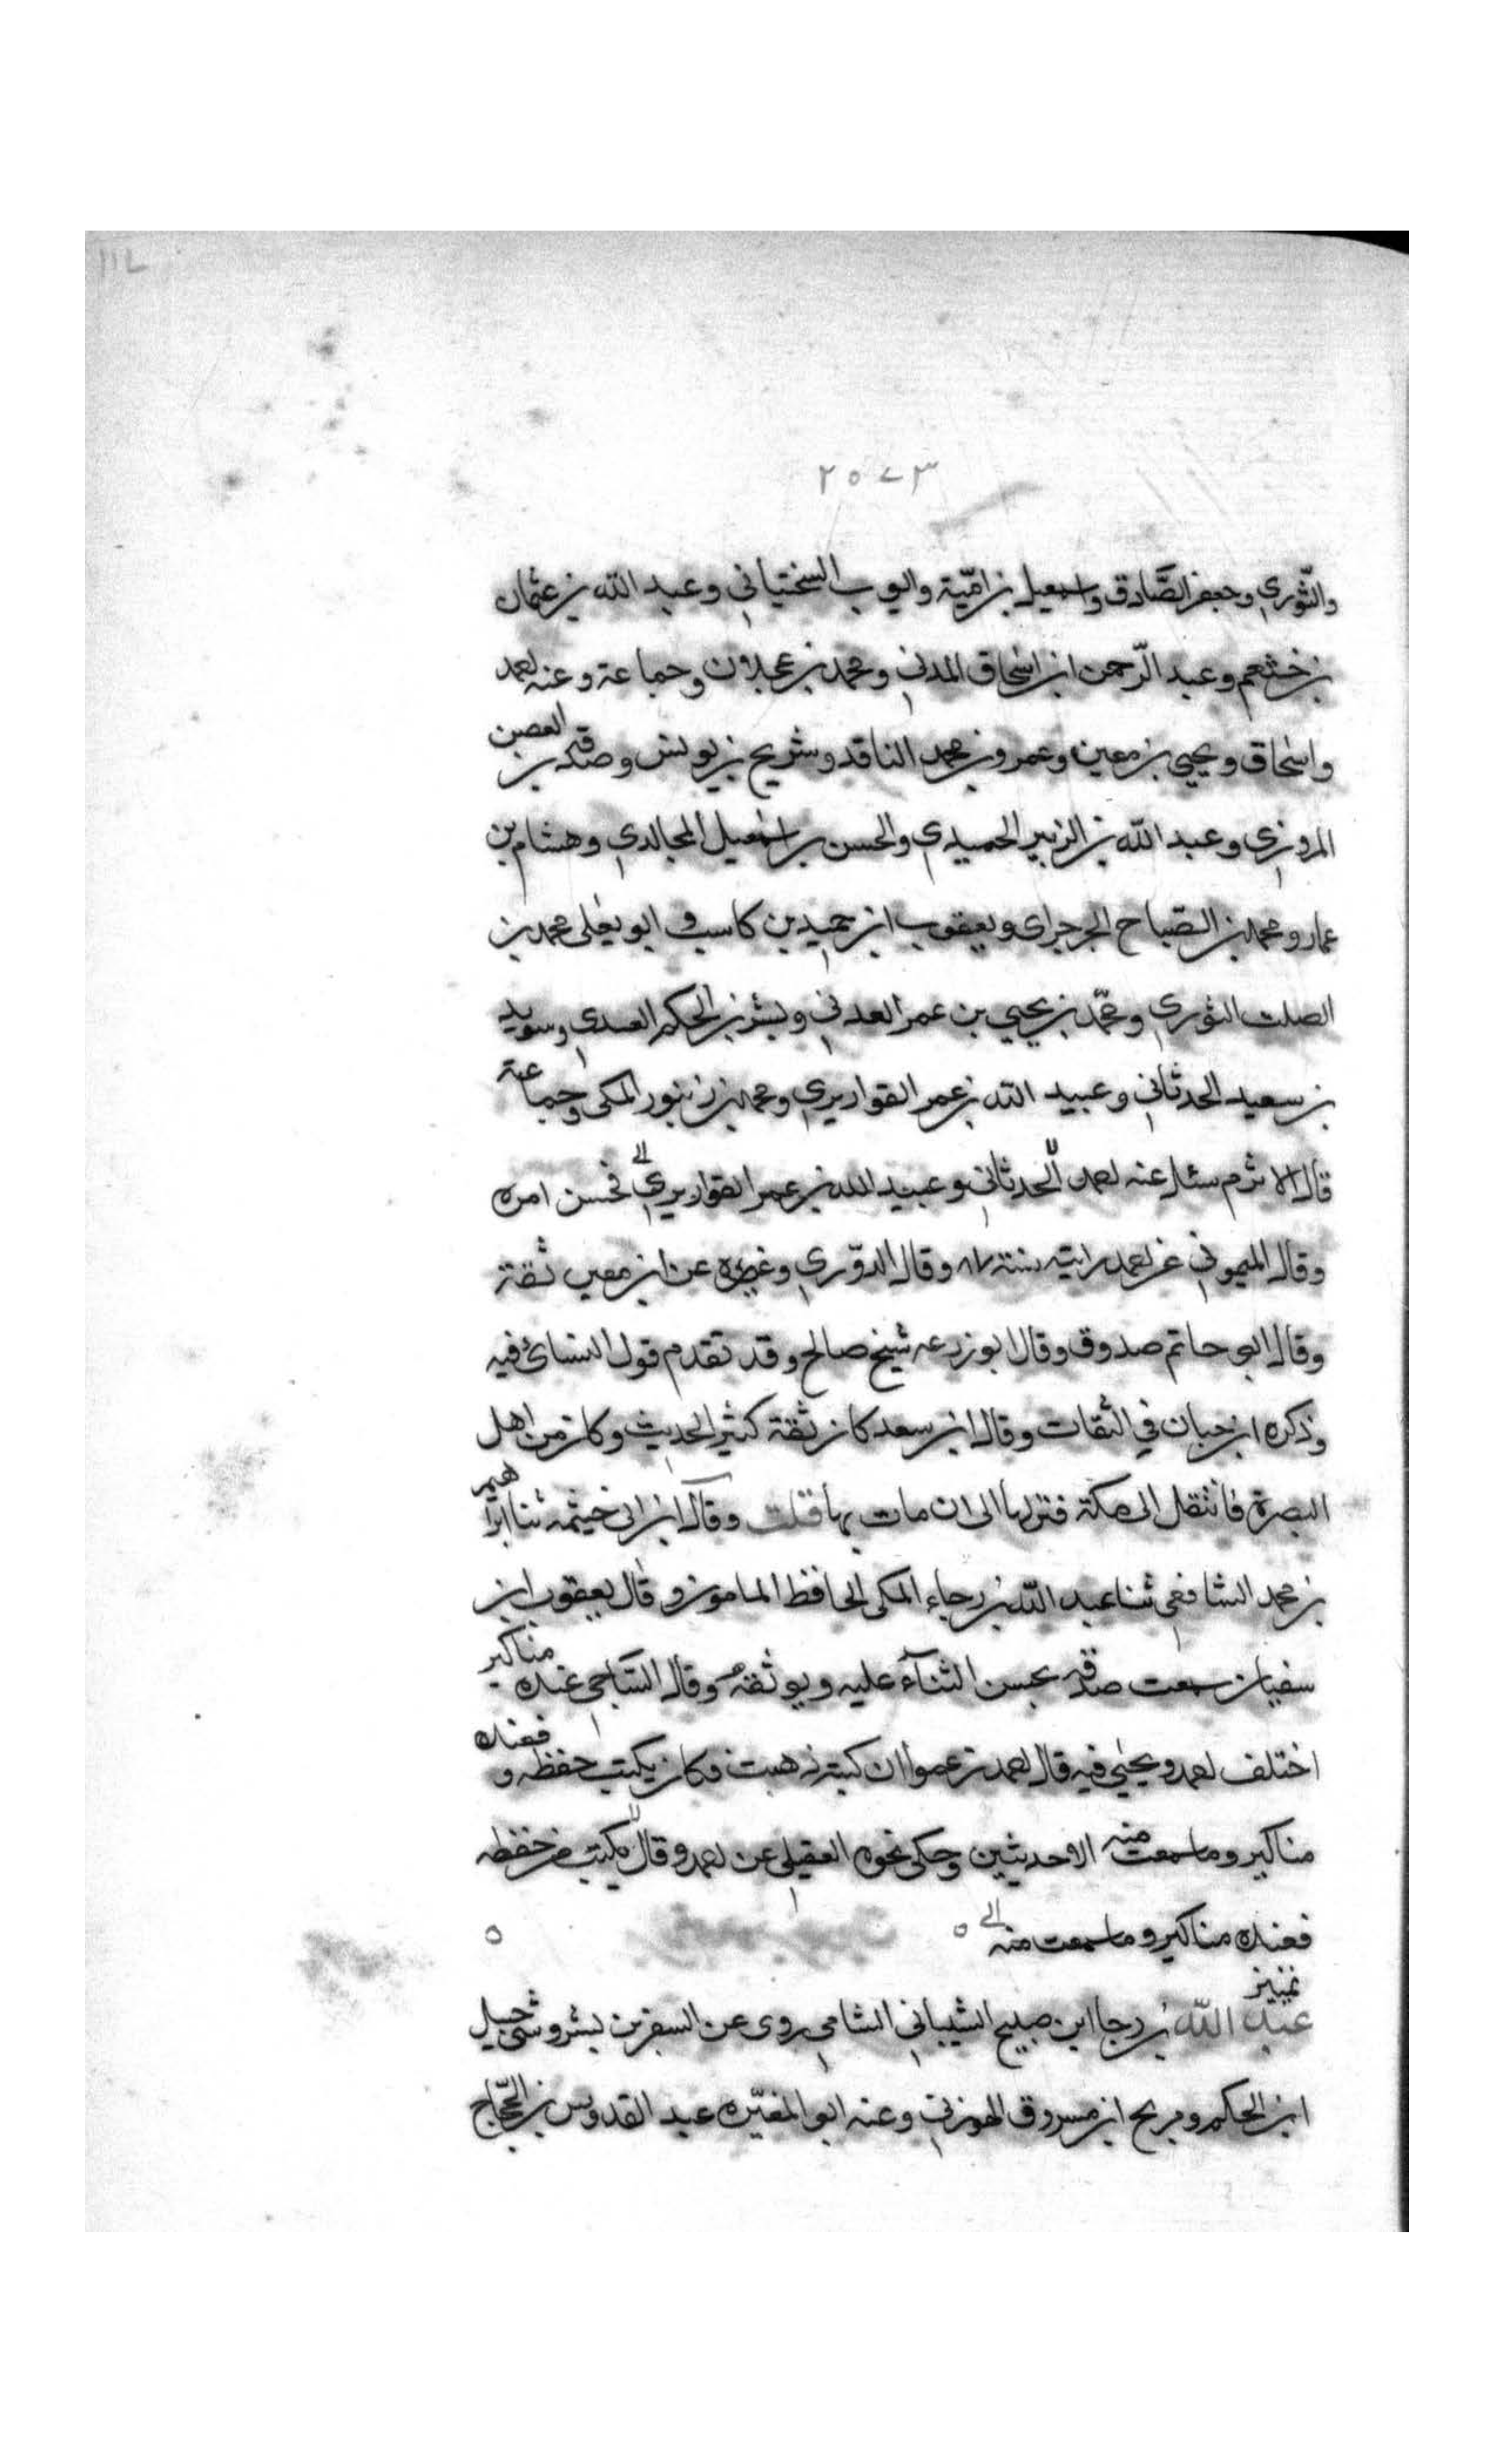 ٢٥٧٣
والثوري وجعفر الصادق واسمعيل بن امية وايوب السختياني وعبد الله بن عثمان
بن خثعم وعبد الرحمن ابن اسحاق المدني ومحمد بن عجلان وجماعة وعنه احمد
واسحاق ويحيى بن معين وعمرو بن محمد الناقد وشريح بن يونس وصدقه بن
المروزي وعبد الله بن الزبير الحميدي والحسن بن اسمعيل المجالدي وهشام بن
عمار ومحمد بن الصباح الجرجراى ويعقوب ابن حميد بن كاسب و ابو يعلى محمد بن
الصلت الثوري ومحمد بن يحيى بن عمر العدني وبشر بن الحكم العبدى وسويد
بن سعيد الحدثاني وعبيد الله بن عمر القواريري ومحمد بن زنبور المكى وجماعة
قال الاثرم سئل عنه احمد الحدثاني وعبيد الله بن عمر القواريري فحسن امره
وقال الميموني عن احمد رايته سنة ٨٧ وقال الدوري وغيره عن ابن معين ثقة
وقال ابي حاتم صدوق وقال ابو زرعه شيخ صالح وقد تقدم قول النسائ فيه
وذكره ابن حبان في الثقات وقال ابن سعد كان ثقة كثير الحديث وكان من اهل
البصرة فانتقل الى مكة فنزلها الى ان مات بها قلت وقال ابن ابى خيثمه ثنا ابراهيم
بن محمد الشافعى ثنا عبد الله بن رجاء المكى الحافظ المامون وقال يعقوب ابن
سفيان سمعت صدقه يحسن الثناء عليه ويوثقه وقال الساجى عنده مناكير
اختلف احمد ويحيى فيه قال احمد زعموا ان كتبه ذهبت فكان يكتب حفظه و فعنده
مناكير وما سمعت منه الا حديثين وحكى نحوه العقيلى عن احمد وقال يكتب من حفظه
فعنده مناكير وما سمعت منه
تمييز
عبد الله بن رجا ابن صبيح الشيباني الشامى روى عن السفر بن بشر وشرحبيل
ابن الحكم ومريح ابن مسروق الهوزني وعنه ابو المغيره عبد القدوس بن الحجاج